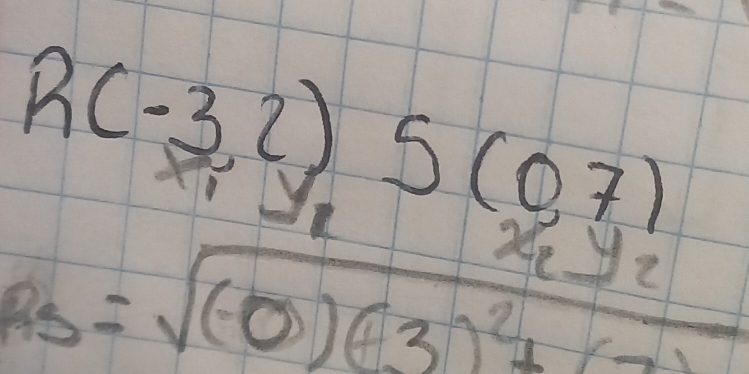 R(-3, 2) S(0, 7)
x₁ y₁ x₂ y₂
RS = √(-0)(+3)² + (7)